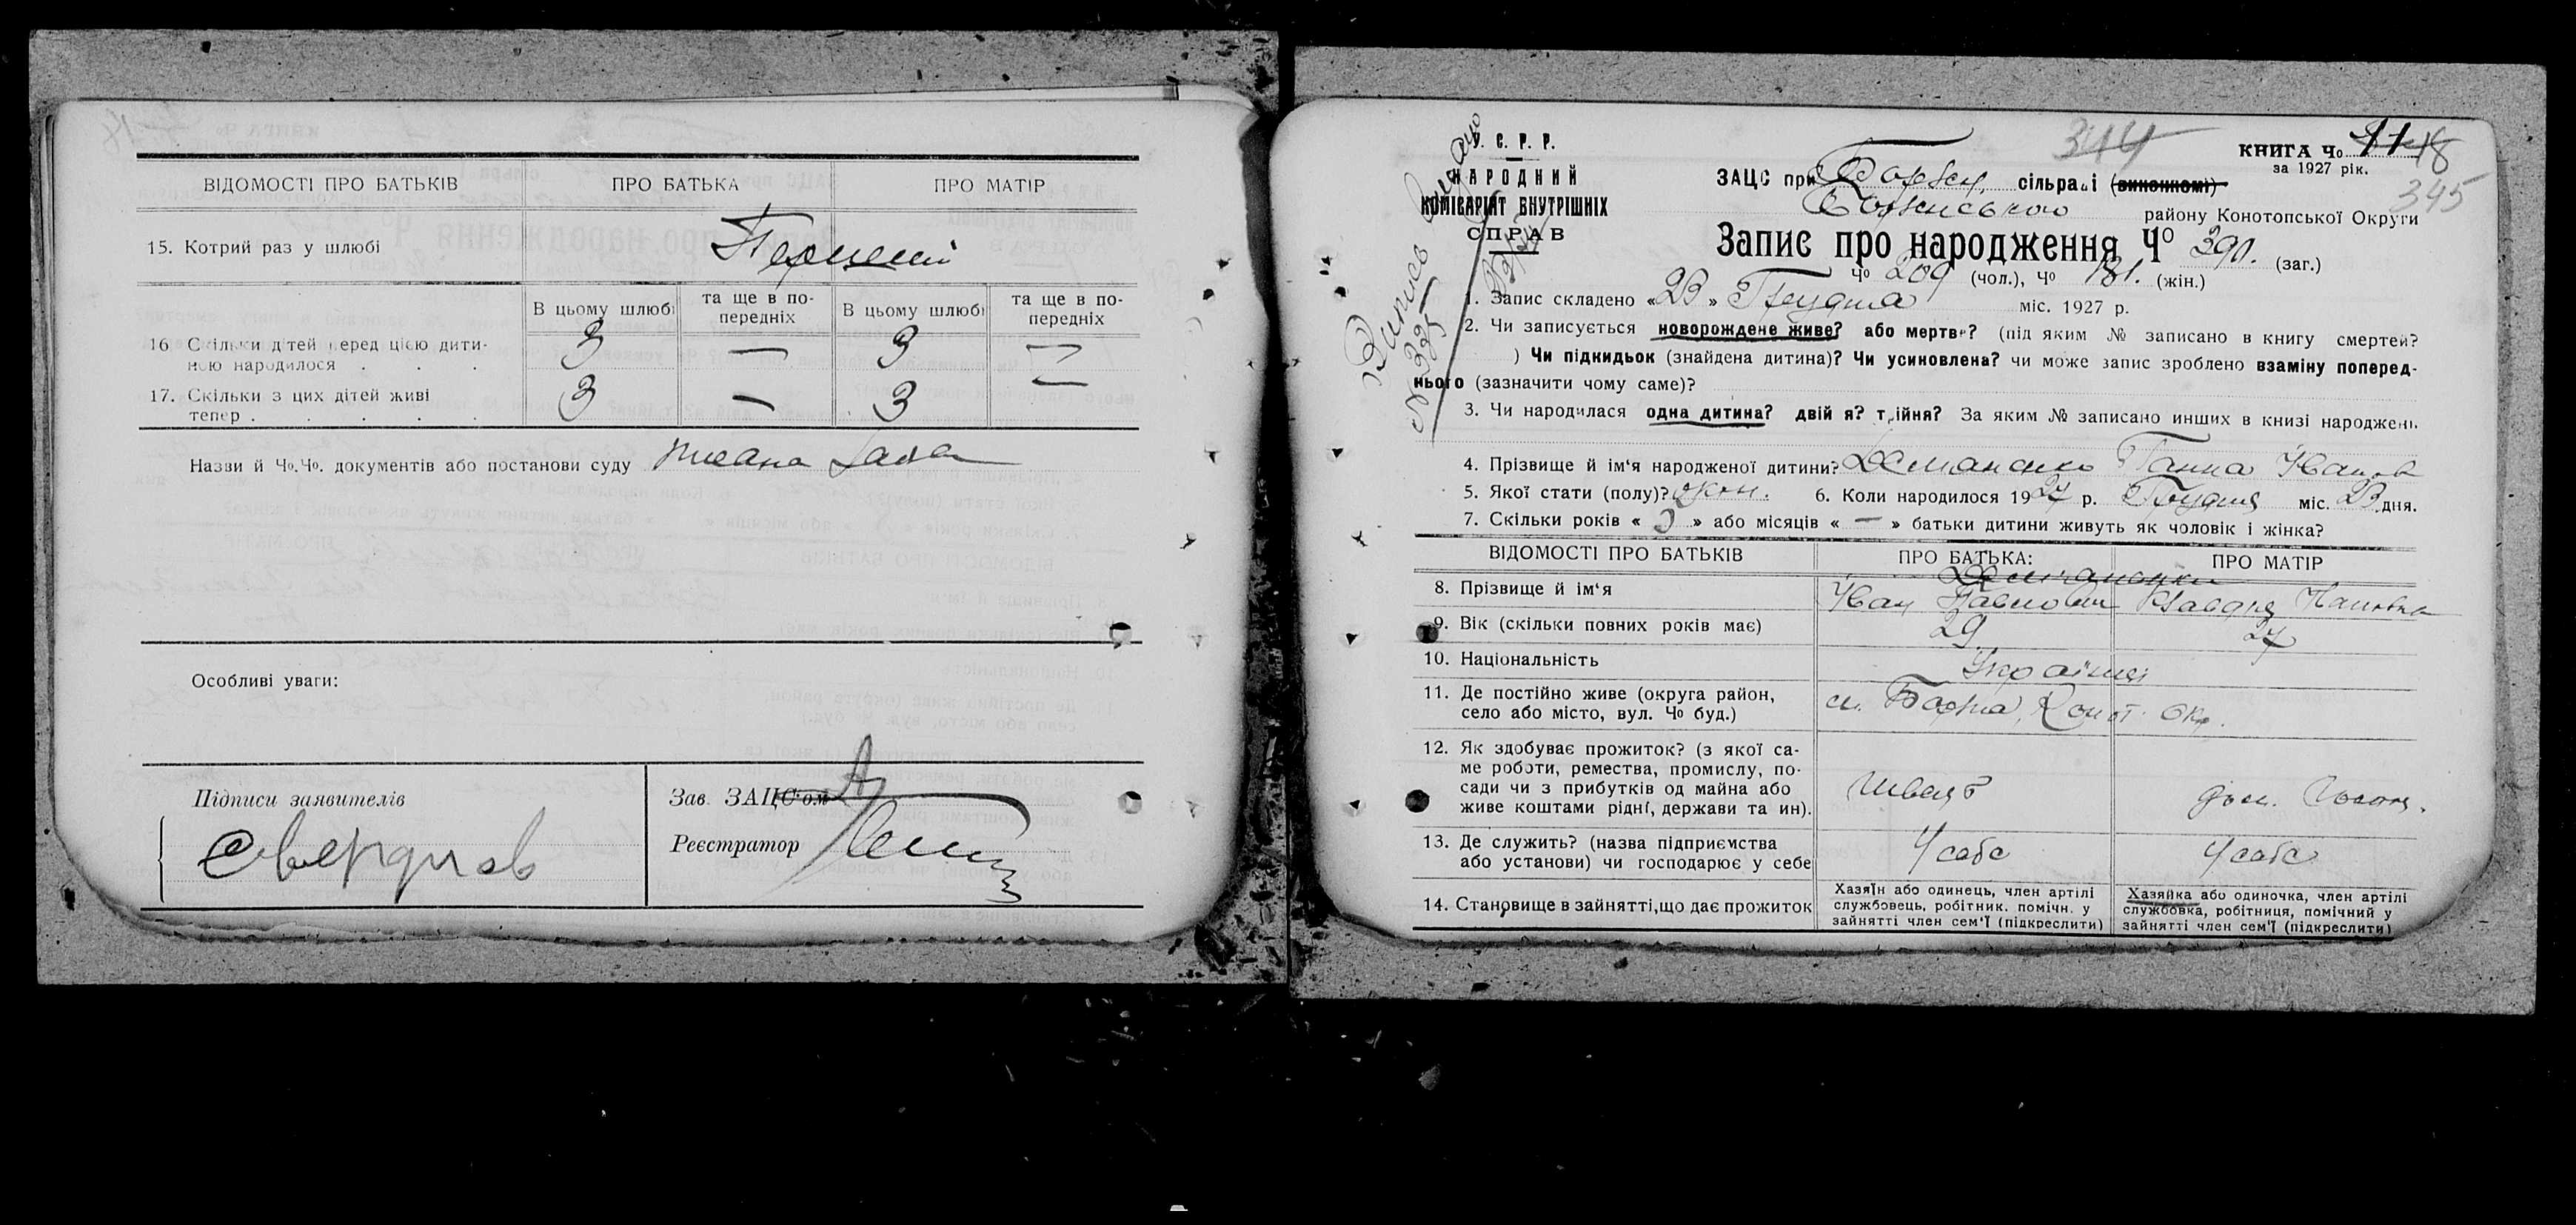 ВІДОМОСТІ ПРО БАТЬКІВ ПРО БАТЬКА ПРО МАТІР
15. Котрий раз у шлюбі Перший
В цьому шлюбі та ще в по- В цьому шлюбі та ще в по-
передніх передніх
16. Скільки дітей перед цією дити- 3 — 3 —
ною народилося . . .
17. Скільки з цих дітей живі 3 — 3 —
тепер . . . . .
Назви й Чо.Чо. документів або постанови суду
Особливі уваги:
Підписи заявителів
Зав. ЗАЦС'ом
Реєстратор
У. С. Р. Р.
НАРОДНИЙ
КОМІСАРІЯТ ВНУТРІШНІХ
СПРАВ
№ 335
344
КНИГА Чо 11 18
за 1927 рік.
345
ЗАЦС при Борзн. сільраді (виконкомі)
Борзнського району Конотопської Округи
Запис про народження Чо 390. (заг.)
Чо 209 (чол.), Чо 181. (жін.)
1. Запис складено «23» Грудня міс. 1927 р.
2. Чи записується новорождене живе? або мертве? (під яким № записано в книгу смертей?
) Чи підкидьок (знайдена дитина)? Чи усиновлена? чи може запис зроблено взаміну поперед-
нього (зазначити чому саме)?
3. Чи народилася одна дитина? двійня? трійня? За яким № записано инших в книзі народжень
4. Прізвище й ім'я народженої дитини? Ганна Іванов
5. Якої стати (полу)? жон. 6. Коли народилося 1927 р. Грудня міс. 23 дня.
7. Скільки років « » або місяців « — » батьки дитини живуть як чоловік і жінка?
ВІДОМОСТІ ПРО БАТЬКІВ ПРО БАТЬКА: ПРО МАТІР
8. Прізвище й ім'я Іван Павлович Клавдія
9. Вік (скільки повних років має) 29 27
10. Національність Українці
11. Де постійно живе (округа район,
село або місто, вул. Чо буд.) м. Борзна, Конот. Окр.
12. Як здобуває прожиток? (з якої са-
ме роботи, ремества, промислу, по-
сади чи з прибутків од майна або
живе коштами рідні, держави та ин). швець дом. госп.
13. Де служить? (назва підприємства
або установи) чи господарює у себе У себе У себе
14. Становище в зайнятті, що дає прожиток
Хазяїн або одинець, член артілі
службовець, робітник. помічн. у
зайнятті член сем'ї (підкреслити)
Хазяйка або одиночка, член артілі
службовка, робітниця, помічний у
зайнятті член сем'ї (підкреслити)